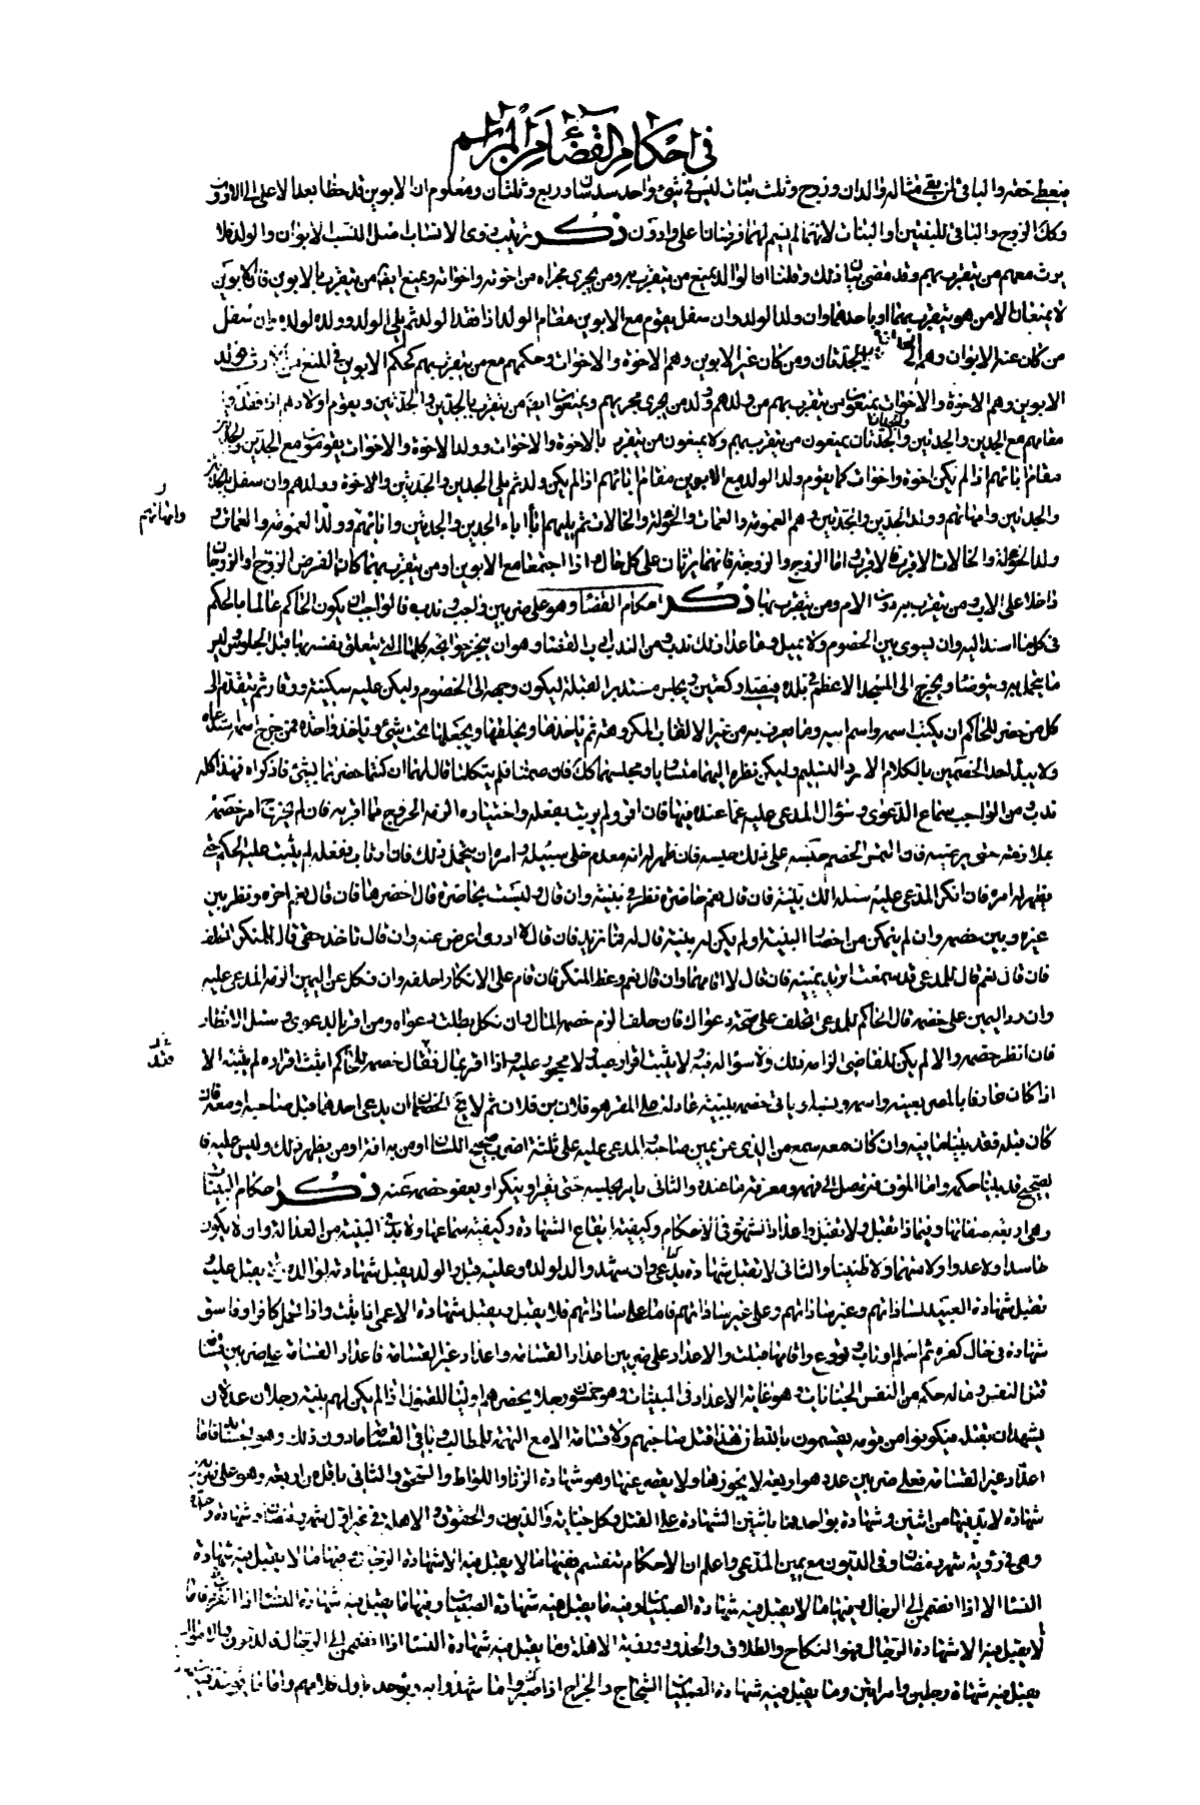 في احكام القضا من المراسم
حقه والباقي لمن بقي مثاله والدان وزوج وثلث بنات ليس في شيء واحد سدسان وربع وثلثان ومعلوم ان الابوين قد حظا بعد الاعلى الى الادون
وكك الزوج والباقي للبنتين او البنات لانهما لم يسم لهما فرضان اعلى وادون ذكر ترتيب ذوى الانساب اصل النسب الابوان والولد فلا
يرث معهم من يتقرب بهم وقد مضى بيان ذلك وقلنا ان الولد يمنع من يتقرب به ومن يجرى مجراه من اخوته واخواته ويمنع ايضا من يتقرب بالابوين فاما الابوين
لا يمنعان الا من هو يتقرب بهما او باحدهما وان ولد الولد وان سفل يقوم مع الابوين مقام الولد اذا فقد الولد ثم يلي الولد وولده لولده وان سفل
من كان عند الابوان وهم الجدتان ومن كان غير الابوين وهم الاخوة والاخوات وحكمهم مع من يتقرب بهم كحكم الابوين في المنع
الابوين وهم الاخوة والاخوات يمنعون من يتقرب بهم من ولدهم وولد من يجرى مجريهم ويمنعون ايضا من يتقرب بالجدين والجدتين ويقوم اولادهم اذا فقدوا
مقامهم مع الجدين والجدتين والجدان والجدتان يمنعون من يتقرب بهم ولا يمنعون من يتقرب بالاخوة والاخوات وولد الاخوة والاخوات يقومون مع الجدين والجدتين
مقام ابائهم اذا لم يكن اخوة واخوات كما يقوم ولد الولد مع الابوين مقام ابائهم اذا لم يكن ولد ثم يلي الجدين والجدتين والاخوة وولدهم وان سفل
والجدتين وامهاتهم وولد الجدين والجدتين وهم العمومة والعمات والخؤلة والخالات ثم يليهم اباء الجدين والجدتين وابائهم وولد العمومة والعمات و
وامهاتهم
ولد الخؤلة والخالات الاقرب فالاقرب واما الزوج والزوجة فانهما يرثان على كل حال واذا اجتمعا مع الابوين او من يتقرب بهما كان الفرض الزوج او الزوجة
داخلا على الاب ومن يتقرب به دون الام ومن يتقرب بها ذكر احكام القضا وهو على ضربين واجب وندب فالواجب ان يكون الحاكم عالما بالحكم
في كل ما اسند اليه وان يسوى بين الخصوم ولا يميل وما عدا ذلك ندب ومن الندب الى القضا وهو ان ينجز حوائجه كلها التي يتعلق نفسه بها قبل الجلوس ليس
ما يتجمل به ويتوضا ويخرج الى المسجد الاعظم في بلده فيصلي ركعتين ويجلس مستدبر القبلة ليكون وجهه الى الخصوم وليكن عليه سكينة ووقار ثم يتقدم الى
كل من حضر للتحاكم ان يكتب اسمه واسم ابيه وما يعرف به من غير الالقاب المكروهة ثم ياخذها ويخلطها ويجعلها تحت شيء وياخذ واحدة فمن خرج اسمه استدعاه
ولا يبدا احد الخصمين بالكلام الا رد السليم وليكن نظره اليهما متساويا ومجلسهما كك فان صمتا فلم يتكلما قال لهما ان كنتما حضرتما لشيء فاذكراه فهذا كله
ندب ومن الواجب سماع الدعوى وسؤال المدعى عليه عما عنده فيها فان اقر ولم يرتب بعقله واختياره الزمه الخروج مما اقر به فان لم يخرج امر خصمه
بملازمته حتى يرضيه فان التمس الخصم حبسه على ذلك حبسه فان ظهر له انه معدم خلى سبيله وامره ان يتمحل ذلك فان ارتاب بعقله لم يثبت عليه الحكم حتى
يظهر له امره فان انكر المدعى عليه سئله الك بينة فان قال نعم حاضرة نظر في بينته وان قال وليست بحاضرة قال احضرها فان قال نعم اخره ونظر بين
غيره وبين خصمه وان لم يتمكن من احضار البينة او لم يكن له بينة قال له فما تريد فان قال لا ادرى اعرض عنه وان قال تاخذ حقي قال للمنكر اتحلف
فان قال نعم قال للمدعى قد سمعت اتريد يمينه فان قال لا اقامهما وان قال نعم وعظ المنكر فان قام على الانكار احلفه وان نكل عن اليمين الزمه المدعى عليه
وان رد اليمين على خصمه قال الحاكم للمدعى اتحلف على صحة دعواك فان حلف الزم خصمه المال وان نكل بطلت دعواه ومن اقر بالدعوى وسئل الانظار
فان انظره خصمه والا لم يكن للقاضي الزامه ذلك ولا سؤاله فيه ولا يثبت اقرار عبد ولا محجور عليه واذا اقر بمال فقال خصمه للحاكم اثبت اقراره لم يثبته الا
اذا كان عارفا بالمقر بعينه واسمه ونسبه او ياتي خصمه ببينة عادلة على المقر هو فلان بن فلان ثم لا يخ الخصمان ان يدعى احدهما قبل صاحبه او معه فان
كان قبله فقد بينا ما فيه وان كان معه سمع من الذي عن يمين صاحبه المدعى عليه على ثلثة اضرب صحيح اللسان او من به افة او من يظهر ذلك وليس عليه فا
لصحيح قد بينا حكمه واما المؤف فنوصل الى فهمه ومعرفة ما عنده والثاني يامر بحبسه حتى يقر او ينكر او يعفو خصمه عنه ذكر احكام البينات
وهي اربعة صفاتها وفيما ذا تقبل ولا تقبل واعداد الشهود في الاحكام وكيفية ايقاع الشهادة وكيفية سماعها ولا بد في البينة من العدالة وان لا يكون
حاسدا ولا عدوا ولا متهما ولا ظنينا والثاني لا تقبل شهادة ولد على وان شهد والد لولده وعليه قبل والولد يقبل شهادته لوالده ولا يقبل عليه
تقبل شهادة العبيد لساداتهم وغير ساداتهم وعلى غير ساداتهم فاما على ساداتهم فلا يقبل ويقبل شهادة الاعمى فيما يثبت واذا تحمل كافر او فاسق
شهادة في حال كفره ثم اسلم او تاب وتورع واقامها قبلت والاعداد على ضربين اعداد القسامة واعداد غير القسامة فاعداد القسامة على ضربين قسامة
قتل النفس وما له حكم من النفس الجنايات وهو غاية الاعداد في البينات وهو خمسون رجلا يحضرهم اولياء المقتول اذا لم يكن لهم بينة رجلان عدلان
يشهدان بقتله فيكونوا من قومه يقسمون بالله ان هذا قتل صاحبهم ولا قسامة الا مع التهمة للمطالب وباقي القسامة ما دون ذلك وهو بحسابه فاما
اعداد غير القسامة فعلى ضربين عدد هو اربعة لا يجوز ولا ينقص عنها وهو شهادة الزنا واللواط والسحق والثاني باقل من اربعة وهو على ضربين
شهادة لابد فيها من اثنين وشهادة بواحد فما باثنين الشهادة على القتل وكل جناية والديون والحقوق والاهلة في غير اول شهر رمضان
وهي في رؤية شهر رمضان وفي الديون مع يمين المدعى واعلم ان الاحكام تنقسم ففيها ما لا يقبل فيه الا شهادة الرجال وفيها ما لا يقبل فيه شهادة
النسا الا اذا انضممن الى الرجال وفيها ما لا يقبل فيه شهادة الصبيان وفيه ما يقبل فيه شهادة الصبيان وفيها ما يقبل فيه شهادة النسا اذا انفردن فاما ما
لا يقبل فيه الا شهادة الرجال فهو النكاح والطلاق والحدود ورؤية الاهلة وما يقبل فيه شهادة النسا اذا انضممن الى الرجال فالديون والاموال
يقبل فيه شهادة رجلين وامراتين وما يقبل فيه شهادة الصبيان الشجاج والجراح اذا ميزوا ما شهدوا به ويؤخذ باول كلامهم واما ما